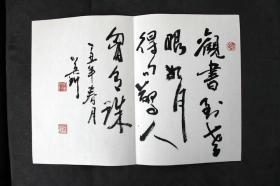 觀書到老
眼如月
得句驚人
胸有珠
丑年春月